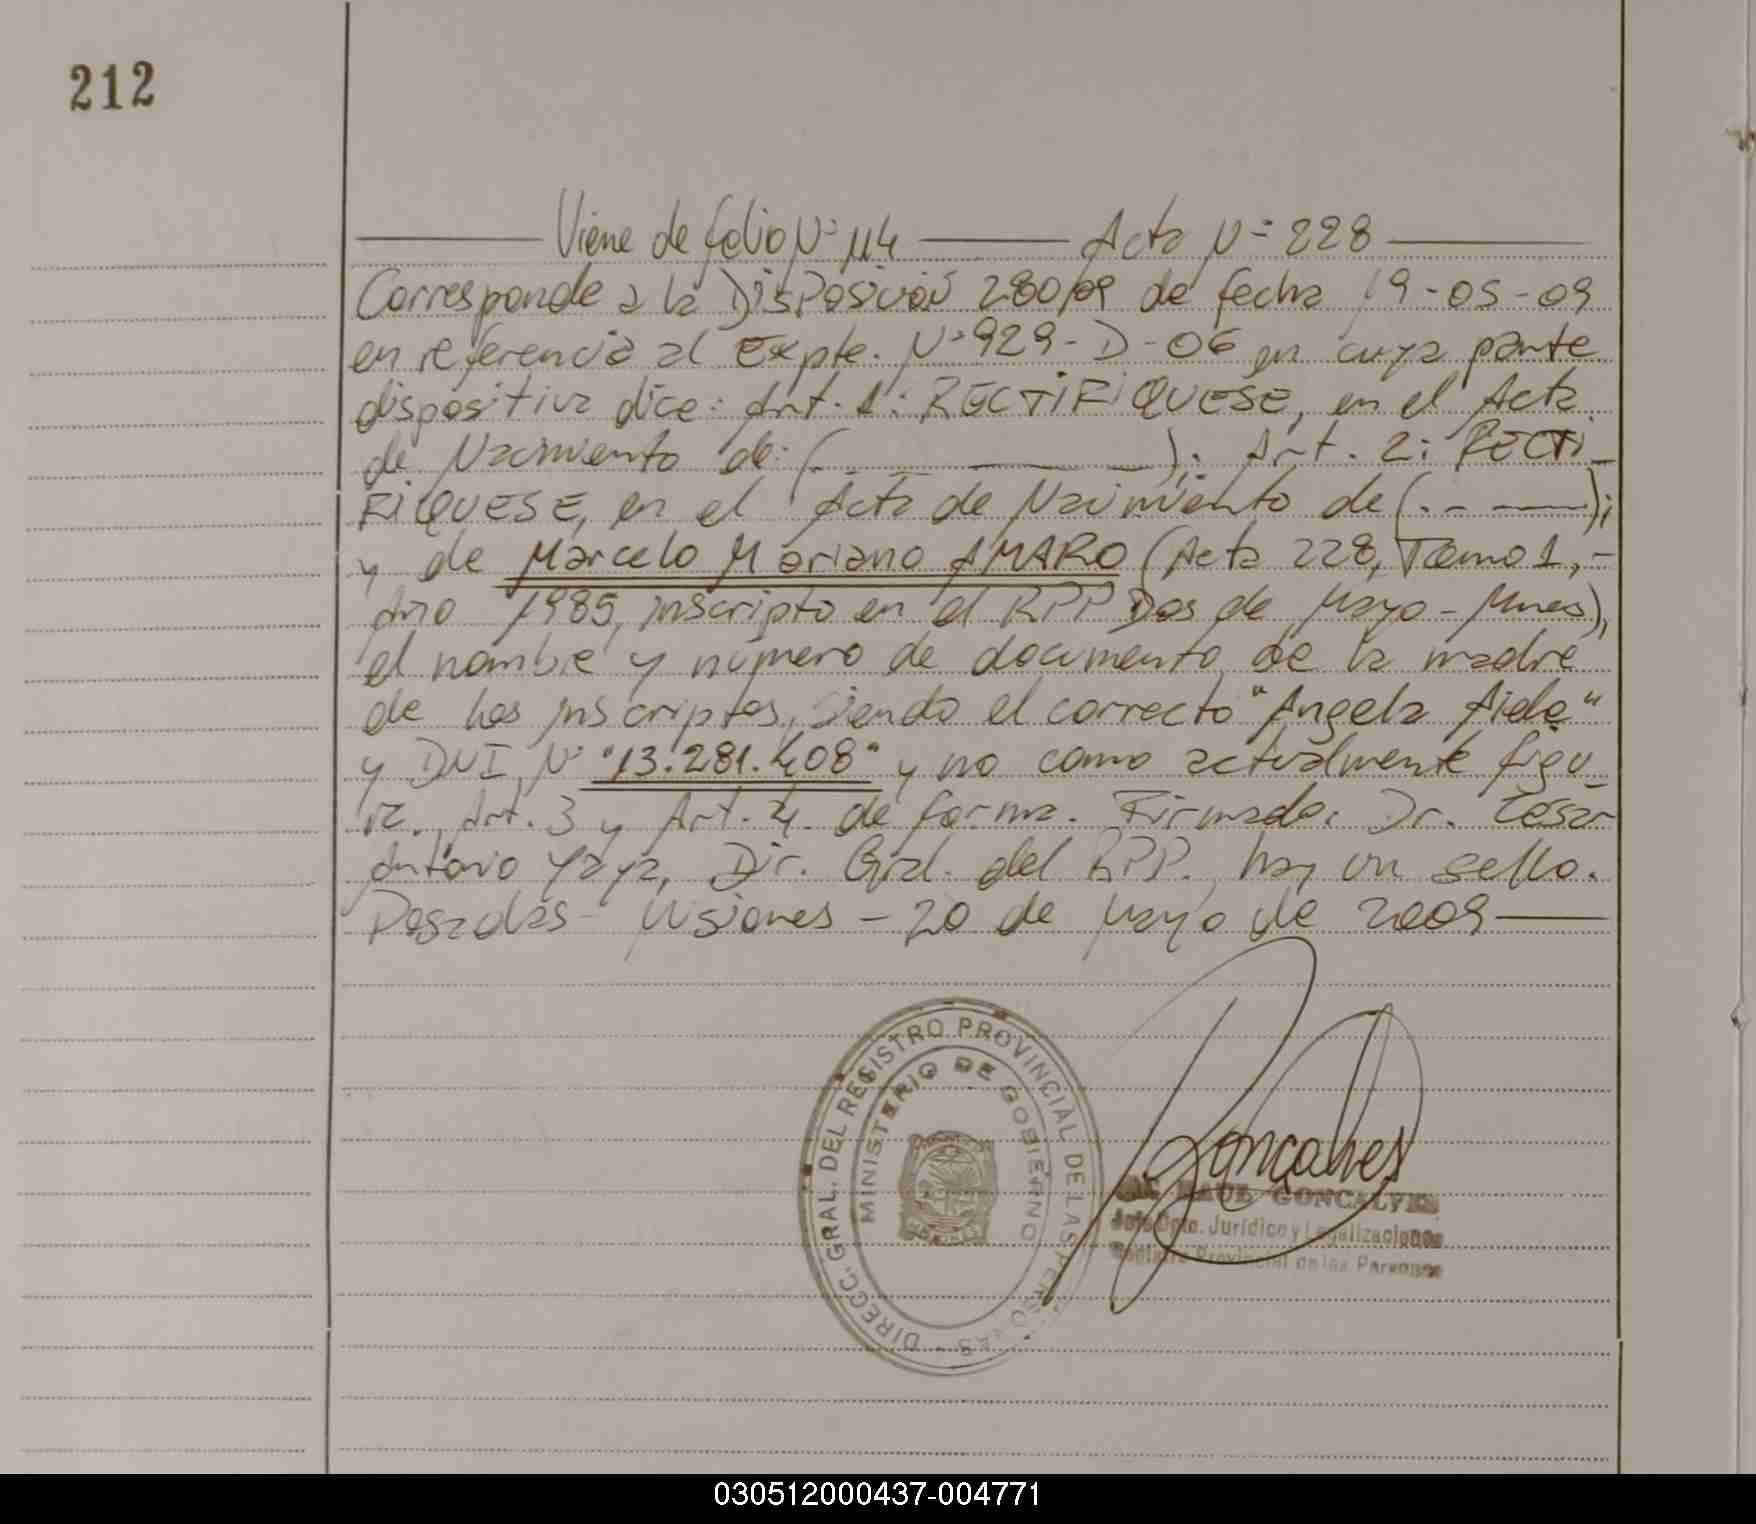 212
Viene de folio Nº 114 Acta Nº 228
Corresponde a la Disposición 280/09 de fecha 19-05-09
en referencia al Expte. Nº 929-D-06 en cuya parte
dispositiva dice: Art. 1: RECTIFIQUESE, en el Acta
de Nacimiento de: (. _ _ ___ ___); Art. 2: RECTI_
FIQUESE, en el Acta de Nacimiento de (. - - ___);
y de Marcelo Mariano AMARO (Acta 228, Tomo 1, -
Año 1985, inscripto en el RPP Dos de Mayo - Mnes),
el nombre y número de documento de la madre
de los inscriptos, siendo el correcto "Angela Aida"
y DNI Nº "13.281.408" y no como actualmente figu_
ra. Art. 3 y Art. 4. de forma. Firmado: Dr. Cesar
Antonio Yaya, Dir. Gral. del RPP. hay un sello.
Posadas - Misiones - 20 de Mayo de 2009
DIRECC. GRAL. DEL REGISTRO PROVINCIAL DE LAS PERSONAS
MINISTERIO DE GOBIERNO
Goncalves
RAUL GONCALVES
Jefe Dpto. Jurídico y Legalizaciones
Registro Provincial de las Personas
030512000437-004771